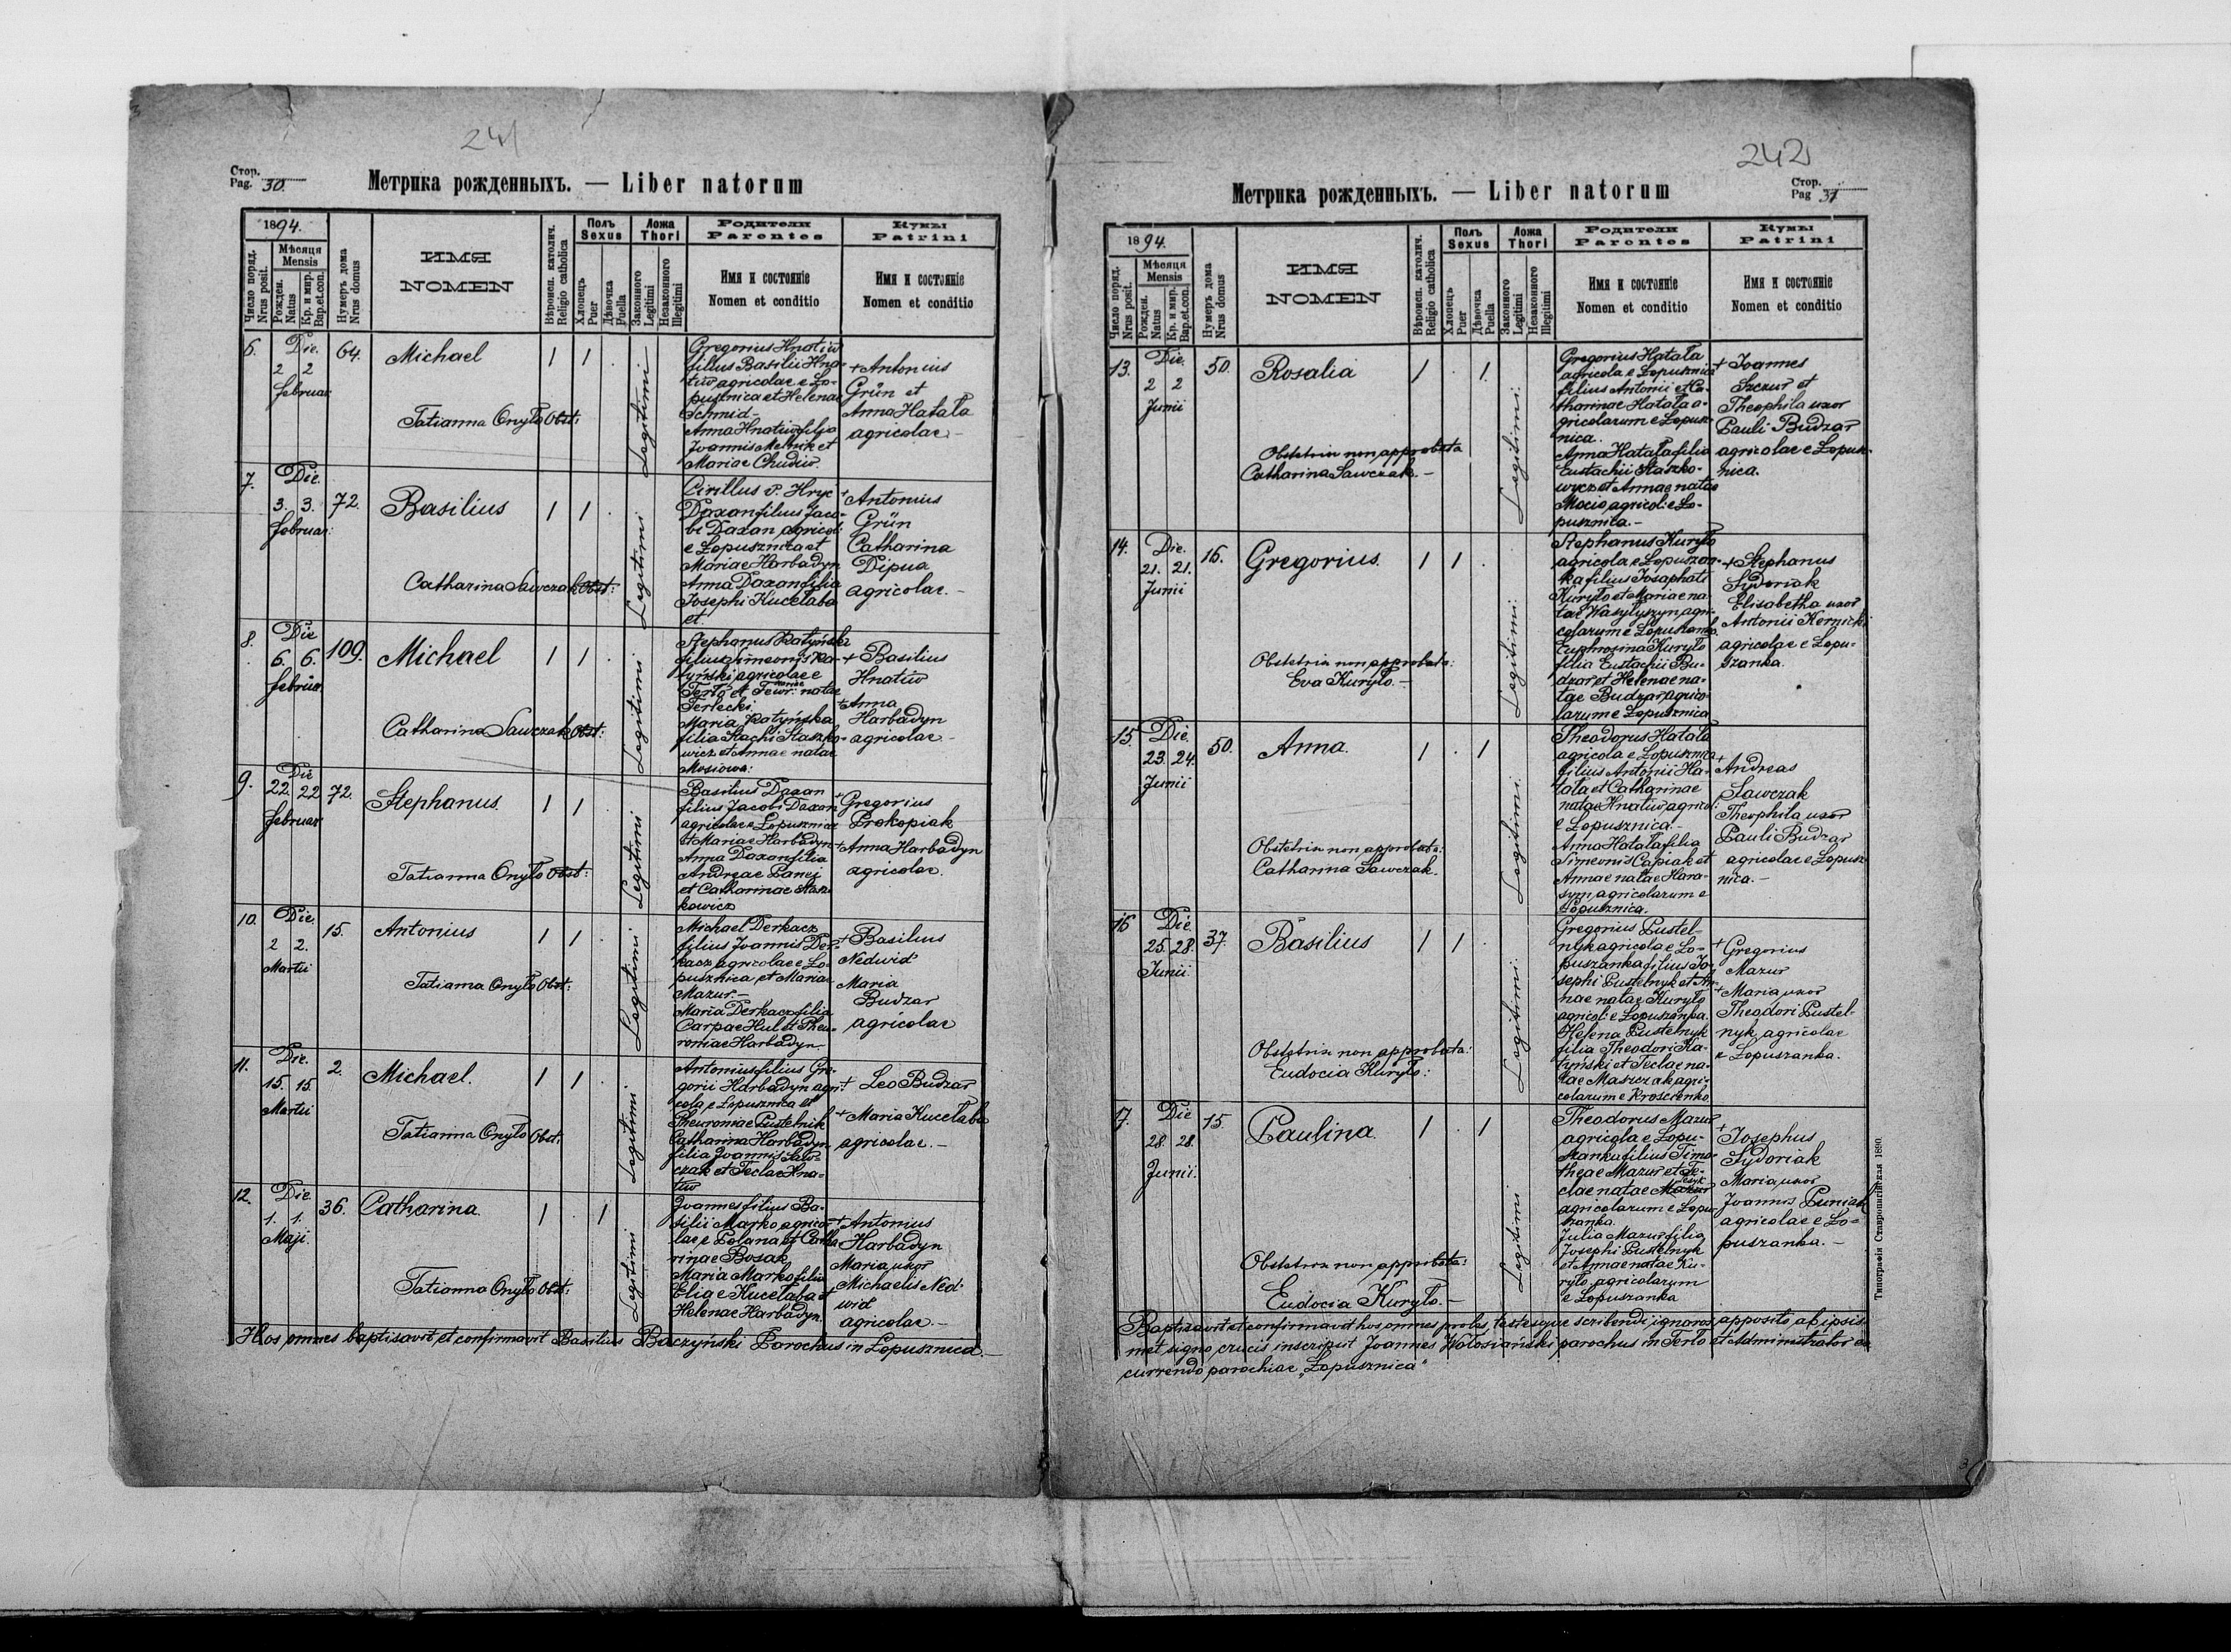 241
Стор.
Pag. 30.
Метрика рожденныхъ. — Liber natorum
1894.
Число поряд.
Nrus posit.
Мѣсяця
Mensis
Рожден.
Natus
Кр. и мир.
Bap.et.con.
Нумеръ дома
Nrus domus
ИМЯ
NOMEN
Вѣроисп. католич.
Religio catholica
Полъ
Sexus
Хлопець
Puer
Дѣвочка
Puella
Ложа
Thori
Законного
Legitimi
Незаконного
Illegitimi
Родители
Parentes
Имя и состояніе
Nomen et conditio
Кумы
Patrini
Имя и состояніе
Nomen et conditio
6.
Die.
2 2
februar.
64.
Michael
1 1 .
Tatianna Onyło Obst:
Legitimi
Gregorius Hnatiw
filius Basilii Hna-
tiw agricolae e Ło-
pusznica et Helenae
Schmid-
Anna Hnatiw filia
Joannis Melnik et
Mariae Chudiw.
+ Antonius
Grün et
Anna Hatała
agricolae -
7.
Die.
3. 3.
februar:
72.
Basilius
1 1 .
Catharina Sawczak Obst:
Legitimi
Cirillus v. Hryc
Daxan filius Jaco-
bi Daxan agricol:
e Łopusznica et
Mariae Harbadyn
Anna Daxan filia
Josephi Kucełaba
et.
+ Antonius
Grün
Catharina
Dipua
agricolae. -
8.
Die
6. 6.
februar
109.
Michael
1 1 .
Catharina Sawczak Obst:
Legitimi
Stephanus Ratyński
filius Simeonis Ra-
tyński agricolae e
Terło et natae
Terlecki.
Maria Ratyńska
filia Stachi Staszko-
wicz et Annae natae
Mosiowa:
+ Basilius
Hnatiw
+ Anna
Harbadyn
agricolae -
9.
Die
22. 22
februar
72.
Stephanus.
1 1 .
Tatianna Onyło Obst:
Legitimi
Basilius Daxan
filius Jacobi Daxan
agricolae e Łopusznica
et Mariae Harbadyn
Anna Daxan filia
Andreae Paney
et Catharinae Stasz-
kowicz
+ Gregorius
Prokopiak
+ Anna Harbadyn
agricolae.
10.
Die.
2 2.
Martii
15.
Antonius
1 1 .
Tatianna Onyło Obst:
Legitimi
Michael Derkacz
filius Joannis Der-
kacz agricolae e Ło-
pusznica, et Mariae
Mazur. -
Maria Derkacz filia
Carpae Hul et Pheu-
roniae Harbadyn.
+ Basilius
Nedwid
Maria
Budzar
agricolae
11.
Die.
15. 15.
Martii
2.
Michael.
1 1 .
Tatianna Onyło Obst:
Legitimi
Antonius filius Gre-
gorii Harbadyn agri-
cola e Łopusznica et
Pheuroniae Pustelnik
Catharina Harbadyn
filia Joannis Saw-
czak et Teclae Hna-
tiw
+ Leo Budzar
+ Maria Kucełaba
agricolae. -
12.
Die
1. 1.
Maji
36.
Catharina.
1 . 1
Tatianna Onyło Obst:
Legitimi
Joannes filius Ba-
silii Marko agrico-
lae e Polana et Catha-
rinae Bosak
Maria Marko filia
Eliae Kucełaba et
Helenae Harbadyn.
+ Antonius
Harbadyn
Maria uxor
Michaelis Ned-
wid
agricolae. -
Hos omnes baptisavit et confirmavit Basilius Baczyński Parochus in Łopusznica. -
242
Метрика рожденныхъ. — Liber natorum
Стор.
Pag 31
1894.
Число поряд.
Nrus posit.
Мѣсяця
Mensis
Рожден.
Natus
Кр. и мир.
Bap.et.con.
Нумеръ дома
Nrus domus
ИМЯ
NOMEN
Вѣроисп. католич.
Religio catholica
Полъ
Sexus
Хлопець
Puer
Дѣвочка
Puella
Ложа
Thori
Законного
Legitimi
Незаконного
Illegitimi
Родители
Parentes
Имя и состояніе
Nomen et conditio
Кумы
Patrini
Имя и состояніе
Nomen et conditio
13.
Die.
2 2
Junii
50.
Rosalia
1 . 1.
Obstetrix non approbata
Catharina Sawczak. -
Legitimi.
Gregorius Hatała
agricola e Łopusznica
filius Antonii et Ca-
tharinae Hatała a-
gricolarum e Łopusz-
nica.
Anna Hatała filia
Eustachii Staszko-
wycz et Annae natae
Mocio agricol: e Ło-
pusznica. -
+ Joannes
Szczur et
Theophila uxor
Pauli Budzar
agricolae e Łopusz-
nica.
14.
Die.
21. 21.
Junii
16.
Gregorius.
1 1 .
Obstetrix non approbata:
Eva Kuryło. -
Legitimi.
Stephanus Kuryło
agricola e Łopuszan-
ka filius Josaphati
Kuryło et Mariae na-
tae Wasylyszyn, agri-
colarum e Łopuszanka.
Euphrosina Kuryło
filia Eustachii Bu-
dzar et Helenae na-
tae Budzar, agrico-
larum e Łopusznica
+ Stephanus
Sydoriak
Elisabetha uxor
Antonii Kernicki
agricolae e Łopu-
szanka.
15.
Die.
23. 24.
Junii
50.
Anna.
1 . 1
Obstetrix non approbata:
Catharina Sawczak.
Legitimi.
Theodorus Hatała
agricola e Łopusznica
filius Antonii Ha-
tała et Catharinae
natae Hnatiw, agricol:
e Łopusznica. -
Anna Hatała filia
Simeonis Capiak et
Annae natae Hara-
sym, agricolarum e
Łopusznica.
+ Andreas
Sawczak
Theophila uxor
Pauli Budzar
agricolae e Łopusz-
nica. -
16
Die.
25. 28.
Junii
37.
Basilius
1 1 .
Obstetrix non approbata:
Eudocia Kuryło:
Legitimi.
Gregorius Pustel-
nyk agricola e Ło-
puszanka filius Jo-
sephi Pustelnyk et An-
nae natae Kuryło
agricol: e Łopuszanka.
Helena Pustelnyk
filia Theodori Ra-
tyński et Teclae na-
tae Maszczak agri-
colarum e Kroscienko
+ Gregorius
Mazur
+ Maria uxor
Theodori Pustel-
nyk agricolae
e Łopuszanka.
17.
Die
28. 28.
Junii.
15.
Paulina.
1 . 1
Obstetrix non approbata:
Eudocia Kuryło. -
Legitimi
Theodorus Mazur
agricola e Łopu-
szanka filius Timo-
theae Mazur et Te-
clae natae Mazur
agricolarum e Łopu-
szanka.
Julia Mazur filia
Josephi Pustelnyk
et Annae natae Ku-
ryło agricolarum
e Łopuszanka
+ Josephus
Sydoriak
Maria uxor
Joannis Puniak
agricolae e Ło-
puszanka. -
Baptisavit et confirmavit hos omnes proles, testesque scribendi ignaros apposito ab ipsis
met signo crucis inscripsit Joannes Wołosiański parochus in Terło et Administrator ex
currendo parochiae „Łopusznica"
Типографія Ставропигійская 1890.